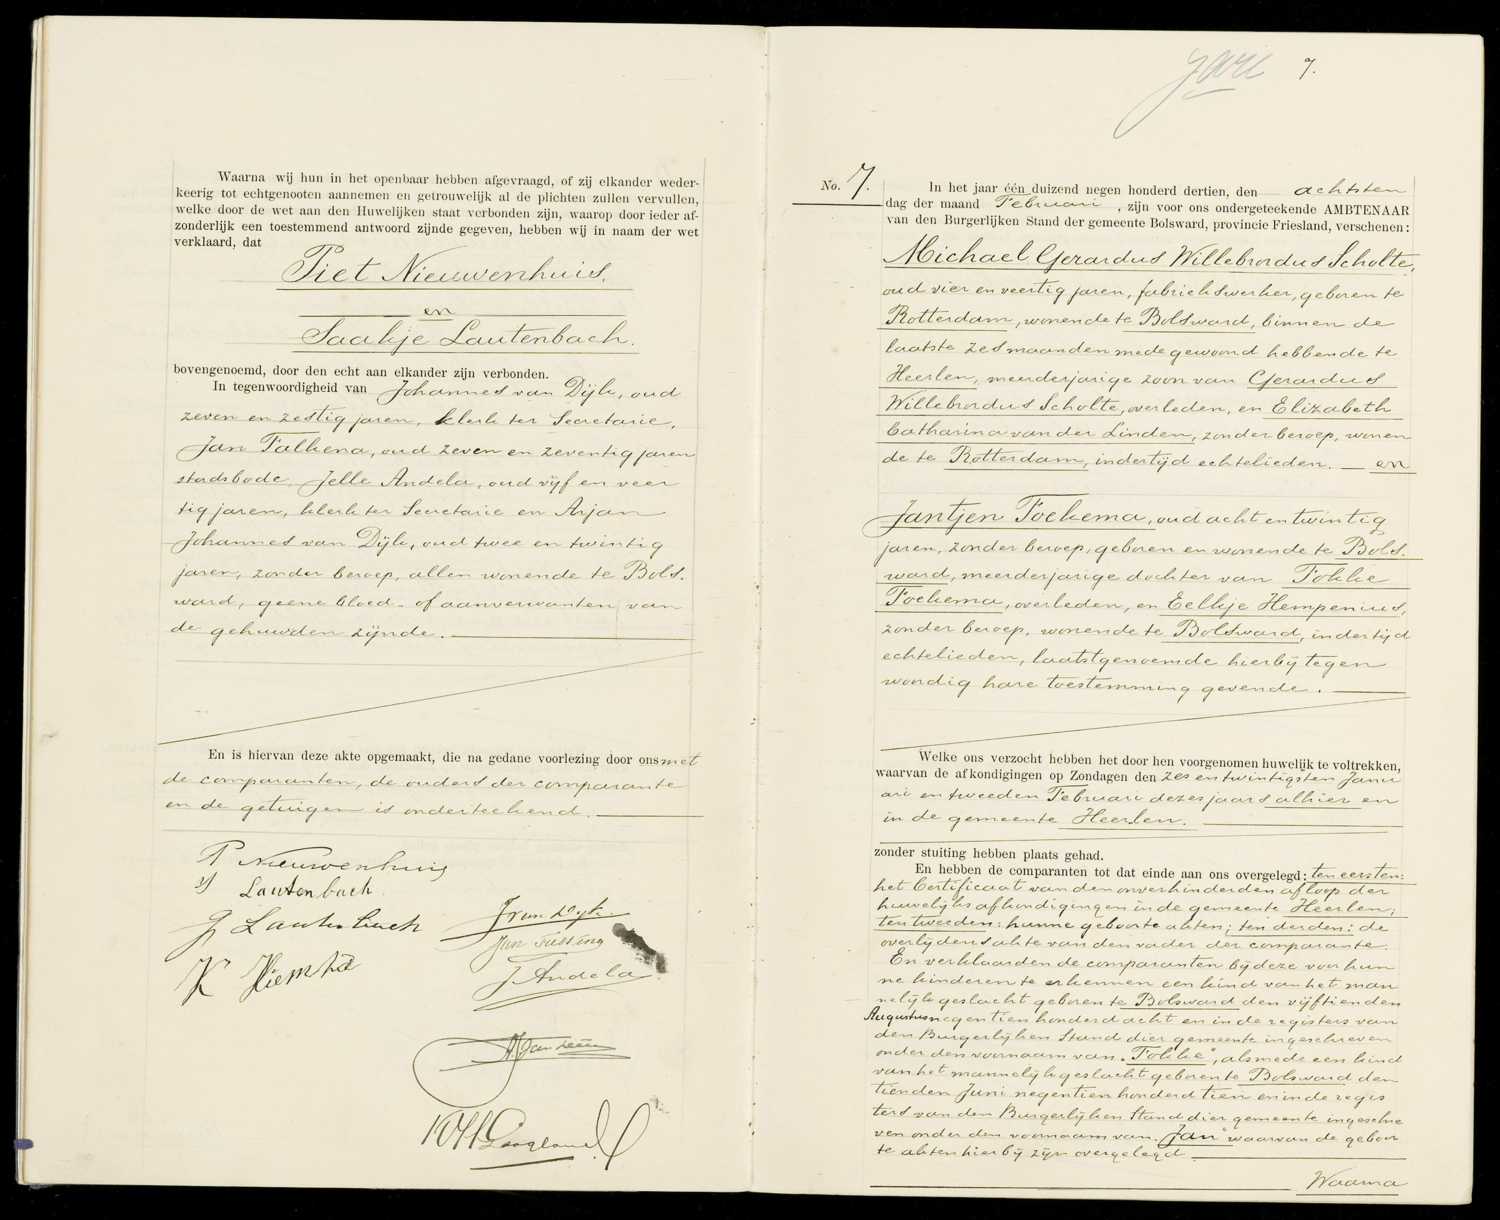 Waarna wij hun in het openbaar hebben afgevraagd, of zij elkander weder-
keerig tot echtgenooten aannemen en getrouwelijk al de plichten zullen vervullen,
welke door de wet aan den Huwelijken staat verbonden zijn, waarop door ieder af-
zonderlijk een toestemmend antwoord zijnde gegeven, hebben wij in naam der wet
verklaard, dat
Piet Nieuwenhuis.
en
Saakje Lautenbach.
bovengenoemd, door den echt aan elkander zijn verbonden.
In tegenwoordigheid van Johannes van Dijk, oud
zeven en zestig jaren, klerk ter Secretarie,
Jan Falkena, oud zeven en zeventig jaren
stadsbode, Jelle Andela, oud vijf en veer
tig jaren, klerk ter Secretarie en Arjan
Johannes van Dijk, oud twee en twintig
jaren, zonder beroep, allen wonende te Bols-
ward, geene bloed- of aanverwanten van
de gehuwden zijnde.
En is hiervan deze akte opgemaakt, die na gedane voorlezing door ons met
de comparanten, de ouders der comparante
en de getuigen is onderteekend.
P Nieuwenhuis
S Lautenbach
J Lautenbach
K Hiemstra
J van Dijk
J. Andela
7.
No. 7.
In het jaar één duizend negen honderd dertien, den achtsten
dag der maand Februari, zijn voor ons ondergeteekende AMBTENAAR
van den Burgerlijken Stand der gemeente Bolsward, provincie Friesland, verschenen:
Michael Gerardus Willebrordus Scholte,
oud vier en veertig jaren, fabriekswerker, geboren te
Rotterdam, wonende te Bolsward, binnen de
laatste zes maanden mede gewoond hebbende te
Heerlen, meerderjarige zoon van Gerardus
Willebrordus Scholte, overleden, en Elizabeth
Catharina van der Linden, zonder beroep, wonen
de te Rotterdam, indertijd echtelieden. en
Jantjen Foekema, oud acht en twintig
jaren, zonder beroep, geboren en wonende te Bols-
ward, meerderjarige dochter van Fokke
Foekema, overleden, en Eelkje Hempenius,
zonder beroep, wonende te Bolsward, indertijd
echtelieden, laatstgenoemde hierbij tegen
woordig hare toestemming gevende.
Welke ons verzocht hebben het door hen voorgenomen huwelijk te voltrekken,
waarvan de afkondigingen op Zondagen den zes en twintigsten Janu
ari en tweeden Februari dezes jaars alhier en
in de gemeente Heerlen.
zonder stuiting hebben plaats gehad.
En hebben de comparanten tot dat einde aan ons overgelegd: ten eersten:
het Certificaat van den onverhinderden afloop der
huwelijks afkondigingen in de gemeente Heerlen;
ten tweeden: hunne geboorte akten; ten derden: de
overlijdens akte van den vader der comparante.
En verklaarden de comparanten bij deze voor hun
ne kinderen te erkennen een kind van het man
nelijk geslacht geboren te Bolsward den vijftienden
Augustus negentien honderd acht en in de registers van
den Burgerlijken Stand dier gemeente ingeschreven
onder den voornaam van "Fokke", alsmede een kind
van het mannelijk geslacht geboren te Bolsward den
tienden Juni negentien honderd tien en in de regis
ters van den Burgerlijken Stand dier gemeente ingeschre
ven onder den voornaam van "Jan" waarvan de geboor
te akten hierbij zijn overgelegd
Waarna